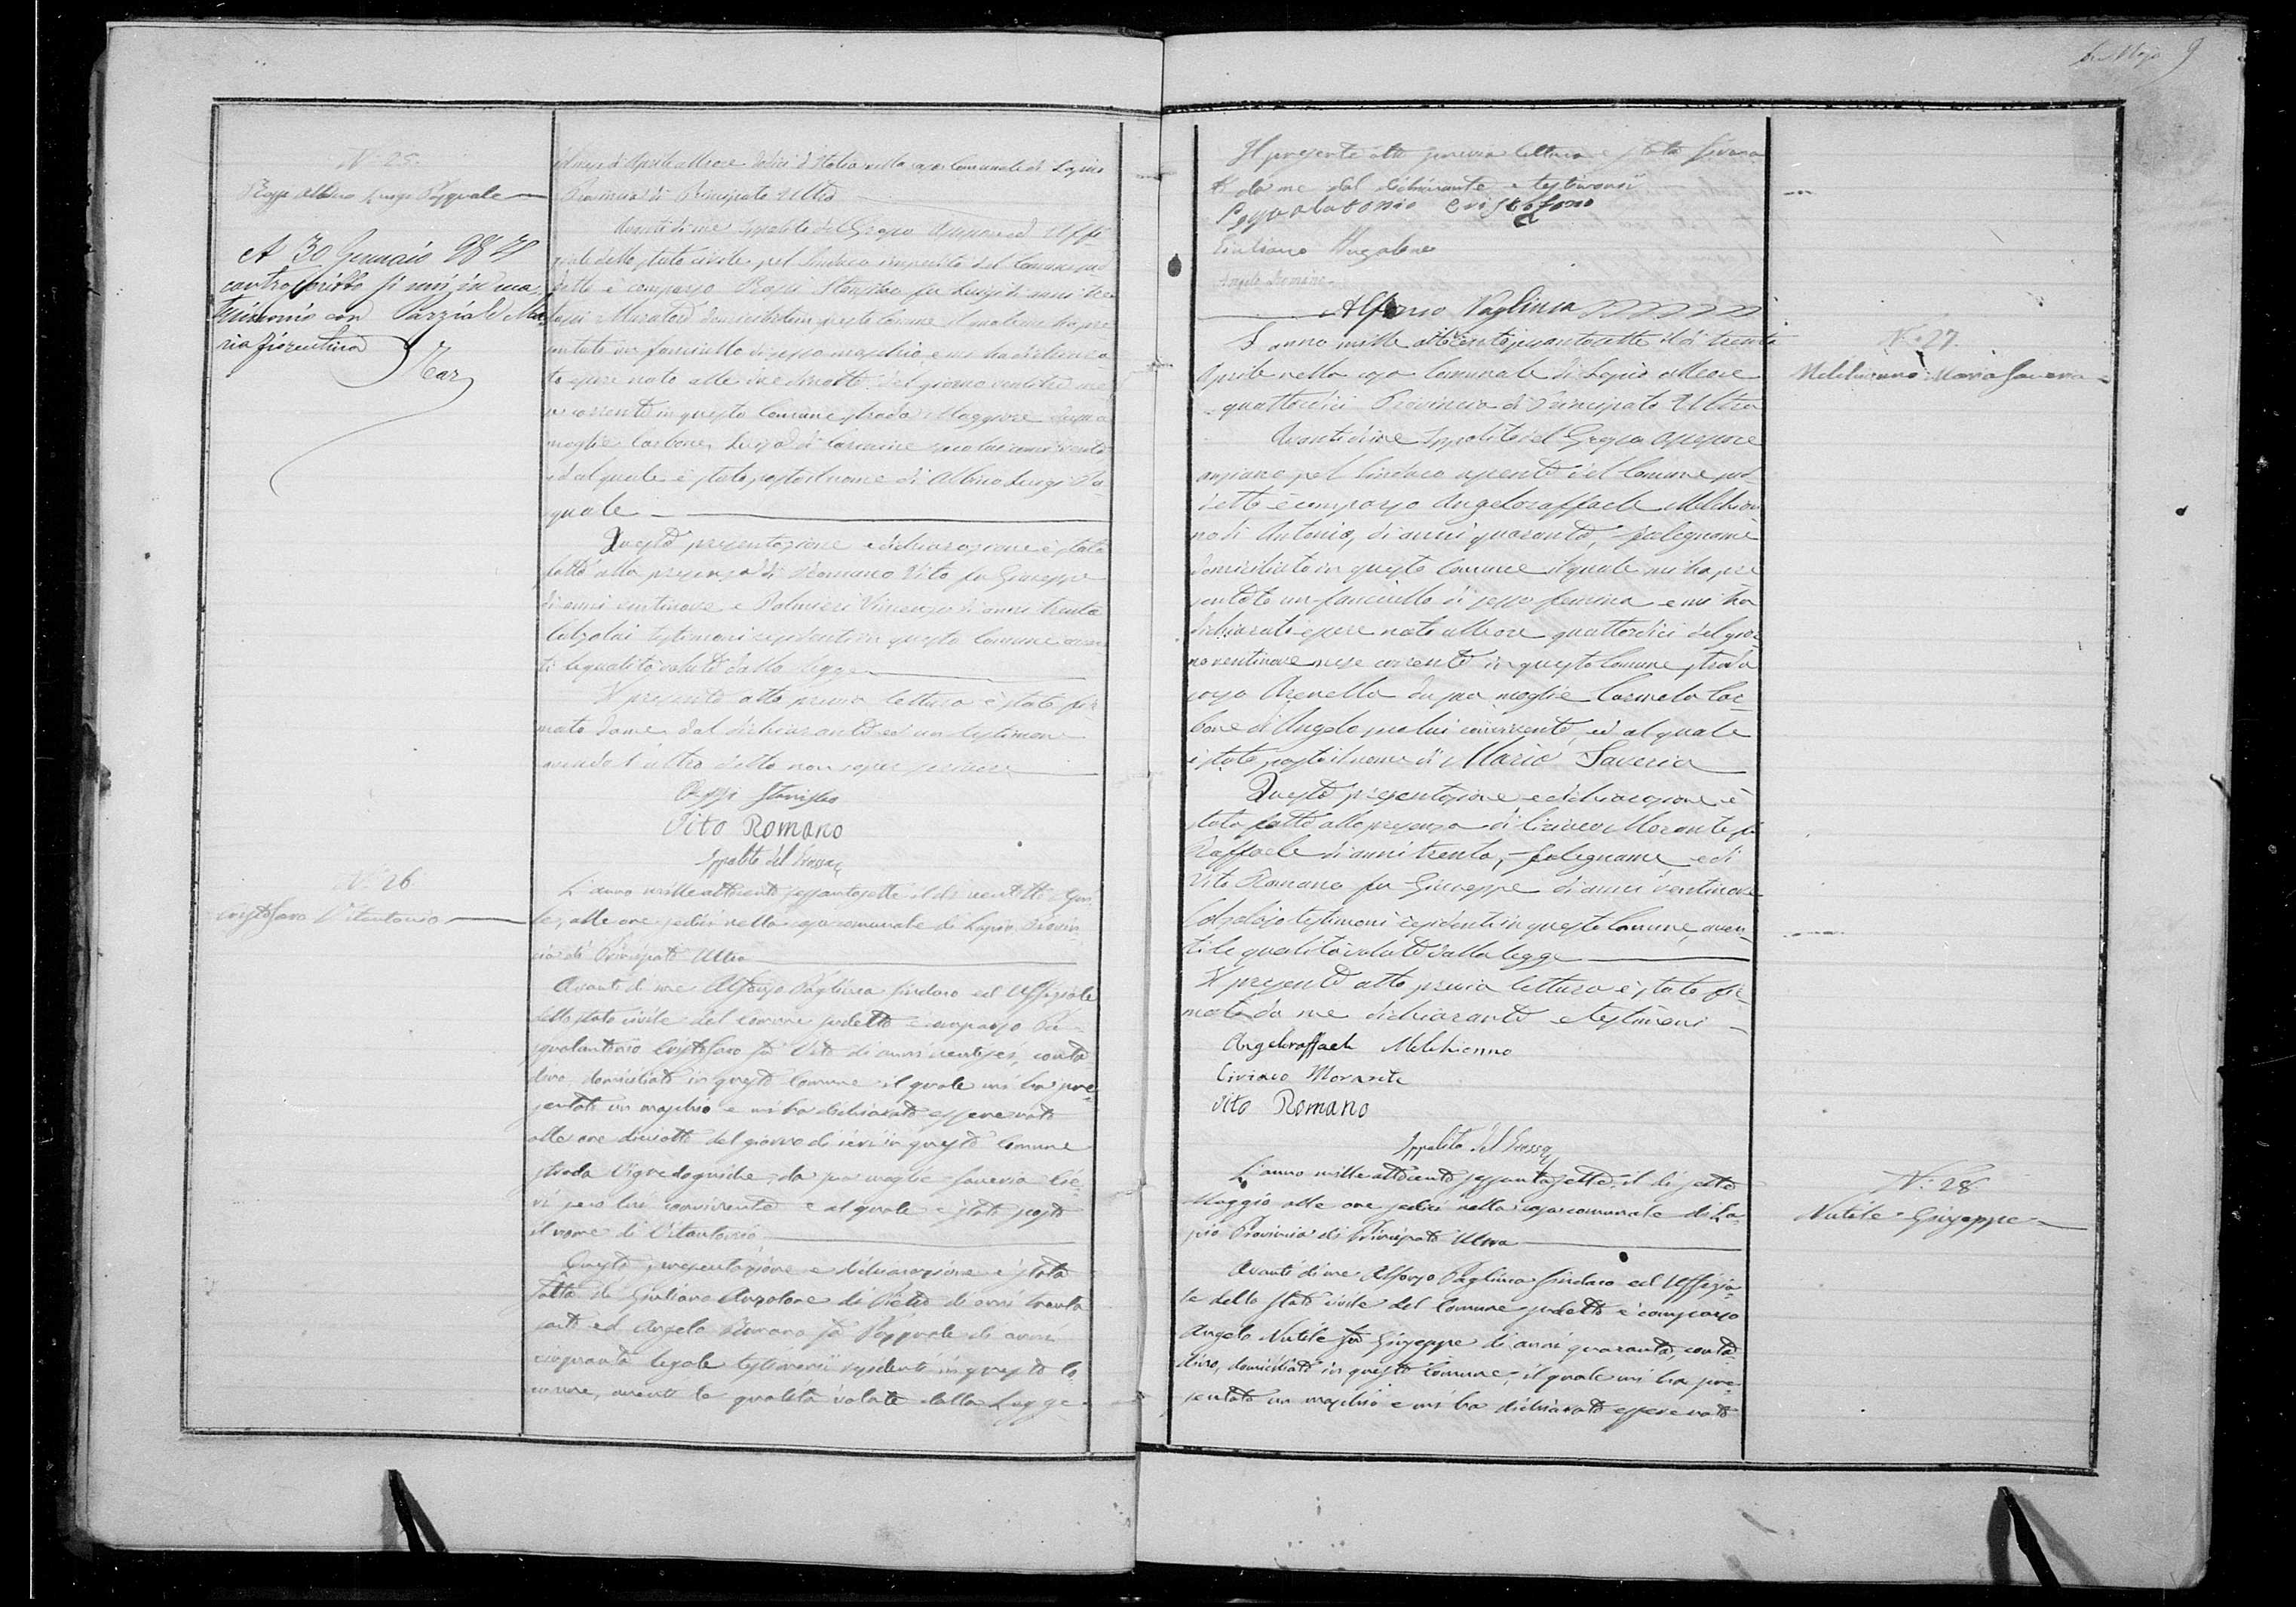 N. 25.
Rossi Albino Luigi Pasquale
A 30 Gennaio
controscritto si unì in ma
trimonio con Parziale Ma
ria Fiorentina
mese di Aprile alle ore dodici d'Italia nella casa Comunale di Lapio
Provincia di Principato Ultra
Avanti di me Ippolito del Grosso Assessore ed Uffi
ziale dello stato civile pel Sindaco impedito del Comune su
detto è comparso Rossi Stanislao fu Luigi di anni
Muratore domiciliato in questo Comune il quale mi ha pre
sentato un fanciullo di sesso maschio, e mi ha dichiara
to essere nato alle ore diciotto del giorno
corrente in questo Comune strada Maggiore da sua
moglie Carbone Luigia di Carmine seco lui convivente
ed al quale è stato posto il nome di Albino Luigi Pa
squale
Questa presentazione e dichiarazione è stata
fatta alla presenza di Romano Vito fu Giuseppe
di anni ventinove e Palmieri Vincenzo di anni trenta
Calzolai testimoni residenti in questo Comune aven
ti le qualità volute dalla legge
Il presente atto previa lettura è stato fir
mato da me dal dichiarante ed un testimone
avendo l'altro detto non saper scrivere
Rossi Stanislao
Vito Romano
Ippolito del Grosso
N. 26
Cristofaro Vitantonio
L'anno mille ottocento sessantasette il dì ventotto Apri
le, alle ore sedici nella casa comunale di Lapio Provin
cia di Principato Ultra
Avanti di me Alfonso Pagliuca Sindaco ed Uffiziale
dello stato civile del comune sudetto è comparso Pa
squalantonio Cristofaro fu Vito di anni ventisei, conta
dino, domiciliato in questo Comune il quale mi ha pre
sentato un maschio e mi ha dichiarato essere nato
alle ore diciotto del giorno di ieri in questo Comune
strada, da sua moglie Saveria
seco lui convivente e al quale è stato posto
il nome di Vitantonio
Questa presentazione e dichiarazione è stata
fatta da Giuliano Anzalone di Pietro di anni trenta
sarto ed Angelo Romano fu Pasquale di anni
cinquanta legale testimonii residenti in questo Co
mune, aventi le qualità volute dalla Legge
9
Il presente atto previa lettura è stato firma
to da me dal dichiarante e testimonii
Pasqualantonio Cristofaro
Giuliano Anzalone
Angelo Romano
Alfonso Pagliuca
N. 27.
Melchionno Maria Saveria
L'anno mille ottocento sessantasette il dì trenta
Aprile nella casa Comunale di Lapio alle ore
quattordici Provincia di Principato Ultra
Avanti di me Ippolito del Grosso Assessore
anziano pel Sindaco assente del Comune su
detto è comparso Angeloraffaele Melchion
no di Antonio, di anni quaranta, falegname
domiciliato in questo Comune il quale mi ha pre
sentato un fanciullo di sesso femina e mi ha
dichiarato essere nato alle ore quattordici del gior
no ventinove mese corrente in questo Comune, strada
Arenella da sua moglie Carmela Car
bone di Angelo seco lui convivente, ed al quale
è stato posto il nome di Maria Saveria
Questa presentazione e dichiarazione è
stata fatta alla presenza di Ciriaco Morante fu
Raffaele di anni trenta, falegname, e di
Vito Romano fu Giuseppe di anni ventinove
Calzolajo testimoni residenti in questo Comune, aven
ti le qualità volute dalla legge
Il presente atto previa lettura è stato fir
mato da me dichiarante e testimoni
Angeloraffaele Melchionno
Ciriaco Morante
Vito Romano
Ippolito del Grosso
N. 28
Nutile Giuseppe
L'anno mille ottocento sessantasette, il dì sette
Maggio alle ore sedici nella casa comunale di La
pio Provincia di Principato Ultra
Avanti di me Alfonso Pagliuca Sindaco ed Uffizia
le dello stato civile del Comune sudetto è comparso
Angelo Nutile fu Giuseppe di anni quaranta, conta
dino, domiciliato in questo Comune, il quale mi ha pre
sentato un maschio e mi ha dichiarato essere nato